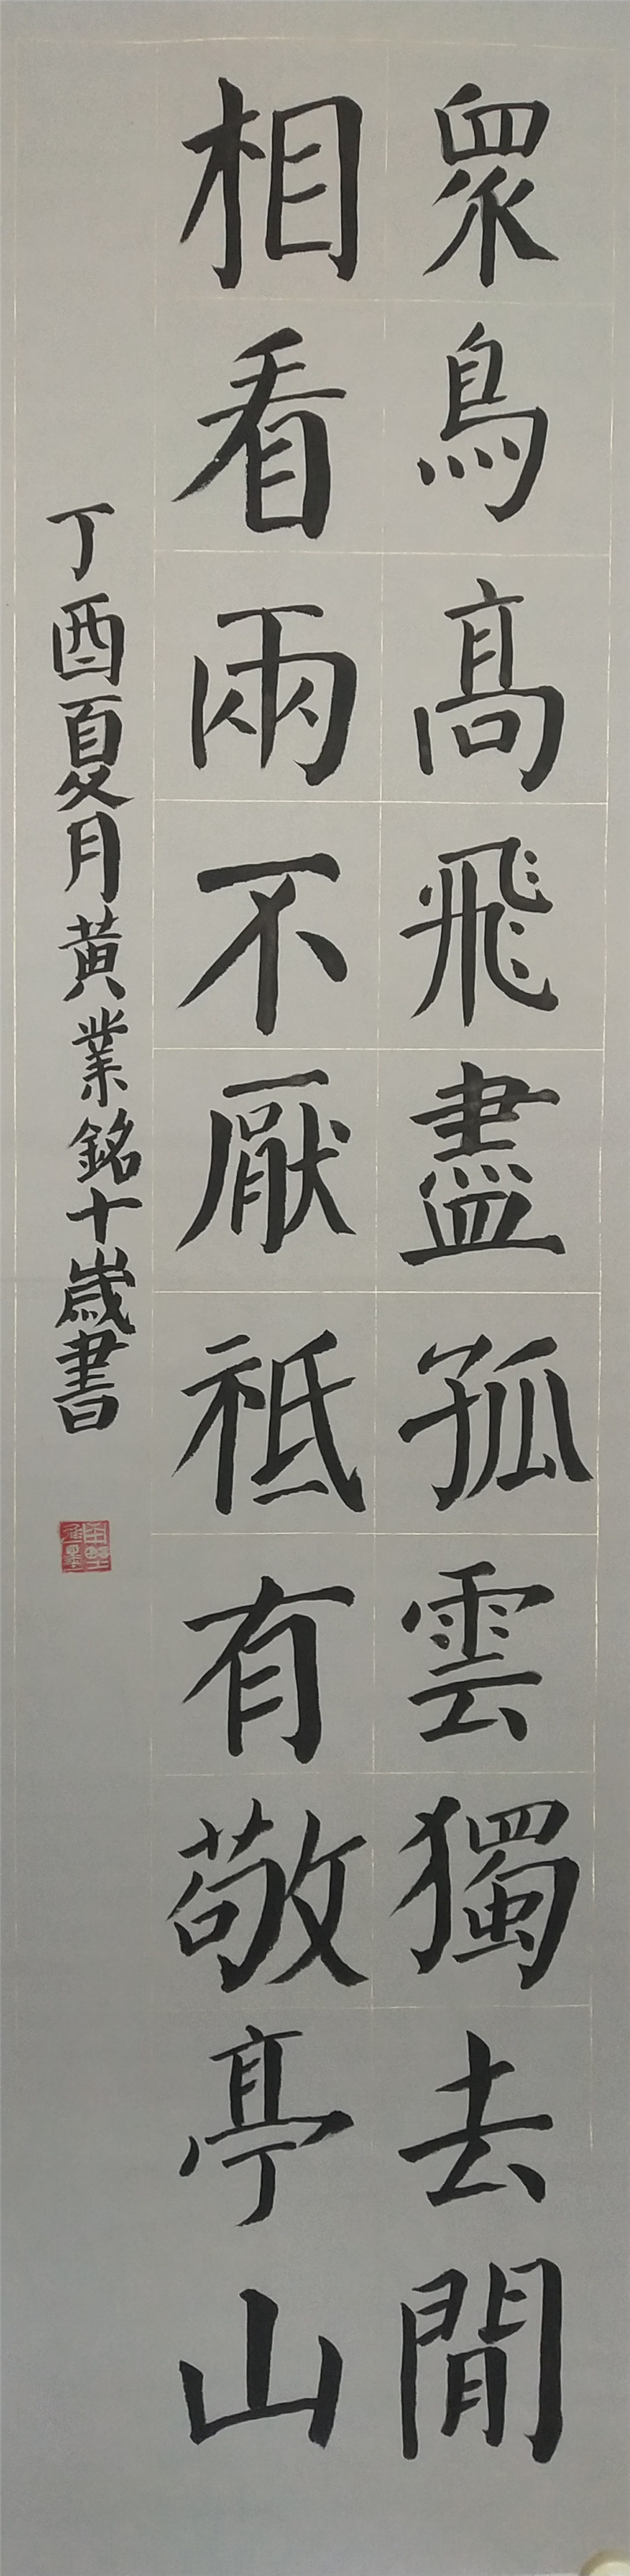 眾鳥高飛盡孤雲獨去閒
相看兩不厭祇有敬亭山
丁酉夏月黃業銘十歲書